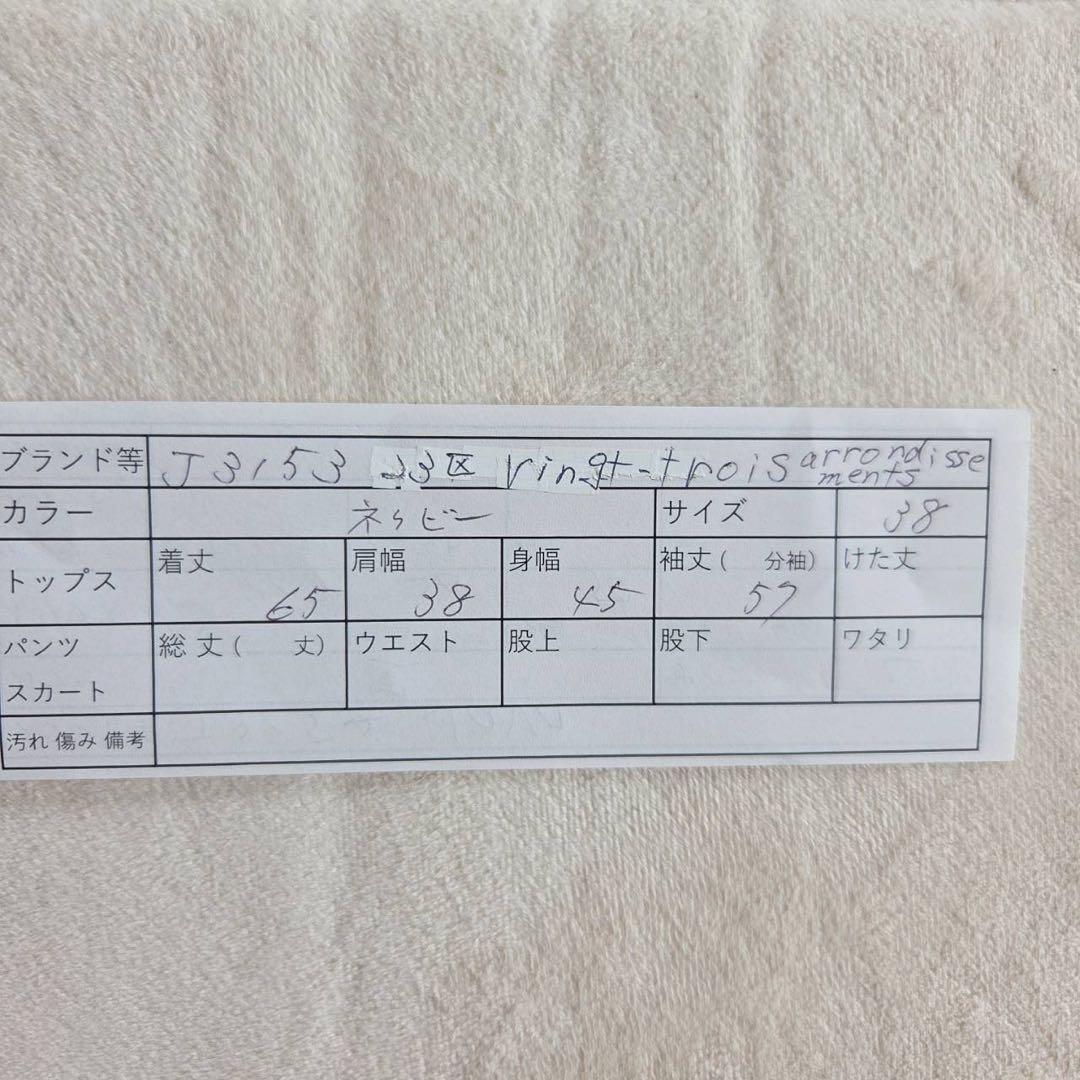 ブランド等 J3153 23区 vingt-trois arrondisse
ments
カラー ネイビー サイズ 38
トップス 着丈 65 肩幅 38 身幅 45 袖丈( 分袖) 57 けた丈
パンツ 総丈( 丈) ウエスト 股上 股下 ワタリ
スカート
汚れ 傷み 備考